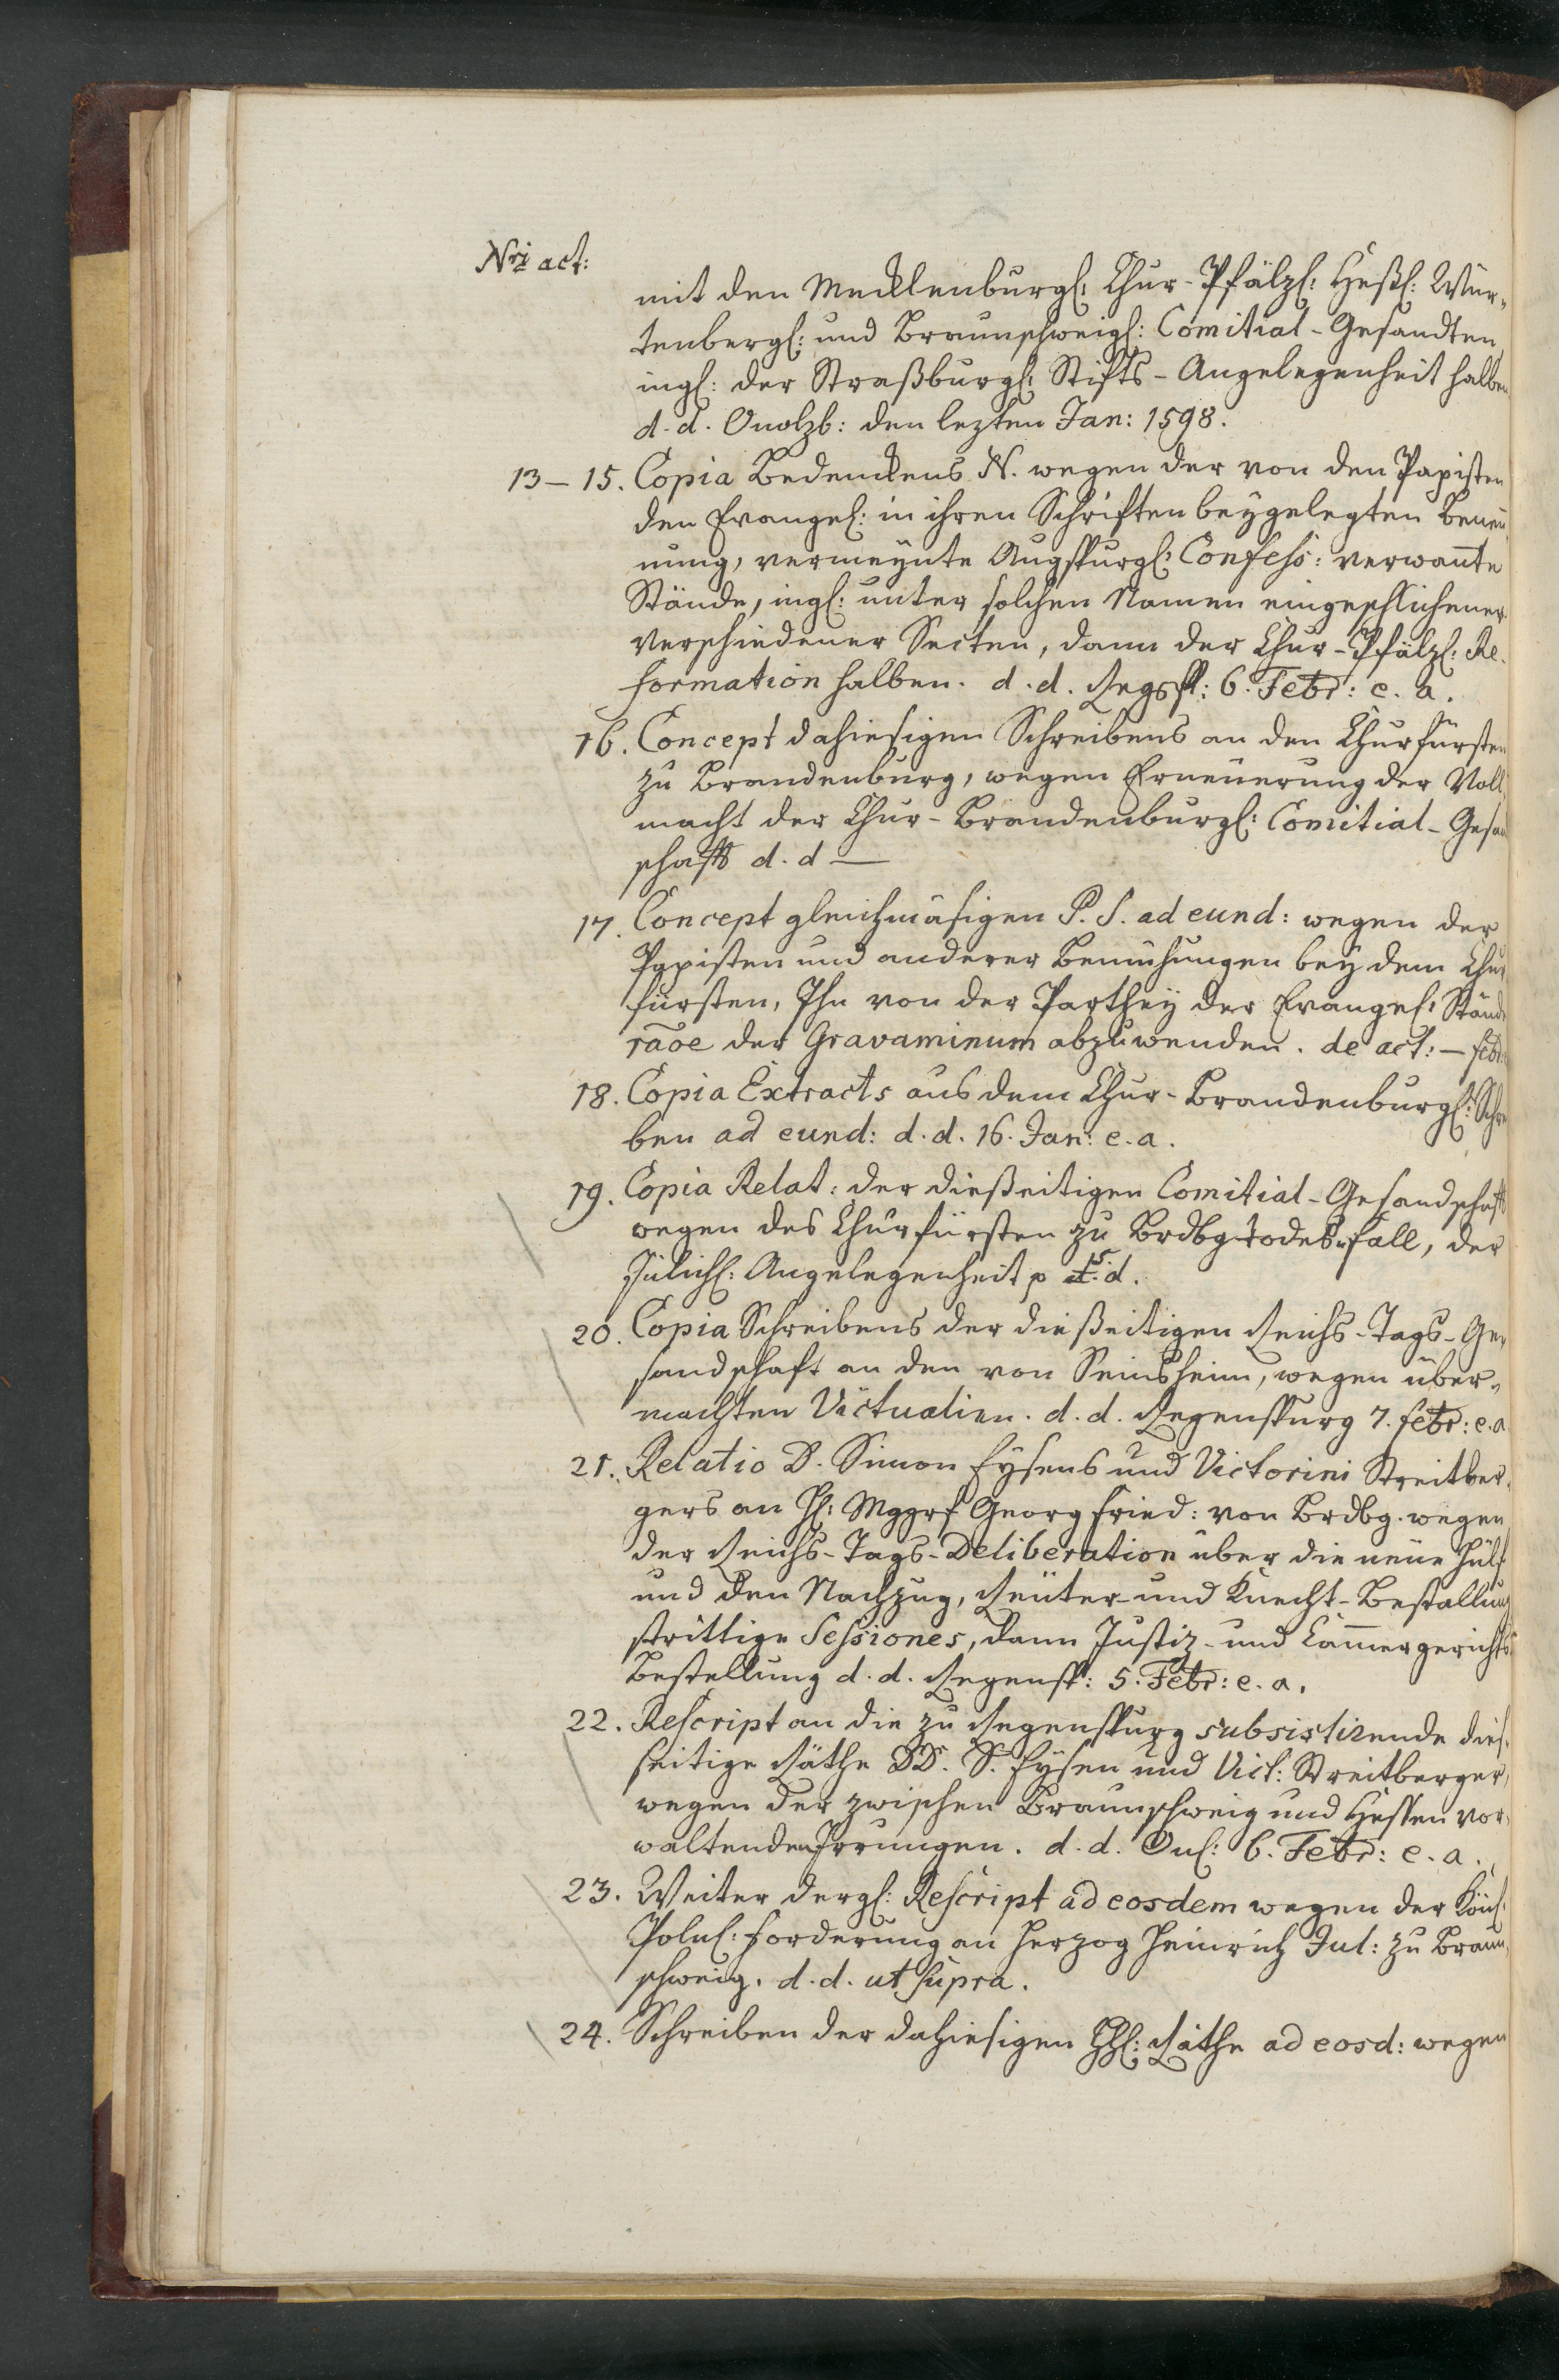 Nri act:
mit den Mecklenburgl: Chur-Pfälzl: Heßl: Wür-
tenbergl: und Braunschweigl: Comitial-Gesandten,
ingl: der Straßburgl: Stifts-Angelegenheit halben
d. d. Onolzb: den lezten Jan: 1598.
13–15. Copia Bedenckens N. wegen der von den Papisten
den Evangel: in ihren Schriften beygelegten Benen̄
nung, vermeynte Augspurgl: Confess: verwan̄te
Stände, ingl: unter solchen Namen eingeschlichener
verschiedener Secten, dann der Chur-Pfälzl: Re-
formation halben. d. d. Regsp: 6. Febr: e. a.
16. Concept dahiesigen Schreibens an den Churfürsten
zu Brandenburg, wegen Erneuerung der Voll-
macht der Chur-Brandenburgl: Comitial-Gesan
schafft d. d —
17. Concept gleichmäsigen P. S. ad eund: wegen der
Papisten und anderer Bemühungen bey dem Chur
fürsten, Ihn von der Parthey der Evangel: Stände
rãoe der Gravaminum abzuwenden. de act: — febr:
18. Copia Extracts aus dem Chur-Brandenburgl: Schrei
ben ad eund: d. d. 16. Jan: e. a.
19. Copia Relat: der dießeitigen Comitial-Gesandschafft
wegen des Churfürsten zu Brdbg Todes-fall, der
Jülichl: Angelegenheit p s. d.
20. Copia Schreibens der dießeitigen Reichs-Tags-Ge-
sandschaft an den von Seinsheim, wegen über-
machten Victualien. d. d. Regenspurg 7. febr: e. a
21. Relatio D. Simon Eysens und Victorini Streitber-
gers an H: Mggrf Georg Fried: von Brdbg. wegen
der Reichs-Tags-Deliberation über die neue Hülf
und den Nachzug, Reuter- und Knecht-Bestallung
strittige Sessiones, dann Justiz- und Cam̄ergerichts
Bestellung d. d. Regensp: 5. Febr: e. a.
22. Rescript an die zu Regenspurg subsistirende dies-
seitige Räthe DD. S. Eysen und Vict: Streitberger,
wegen der zwischen Braunschweig und Hessen vor-
waltenden Irrungen. d. d. Onl: 6. Febr: e. a.
23. Weiter dergl: Rescript ad eosdem wegen der Königl:
Polnl: Forderung an Herzog Heinrich Jul: zu Braun-
schweig. d. d. ut supra.
24. Schreiben der dahiesigen HH: Räthe ad eosd: wegen